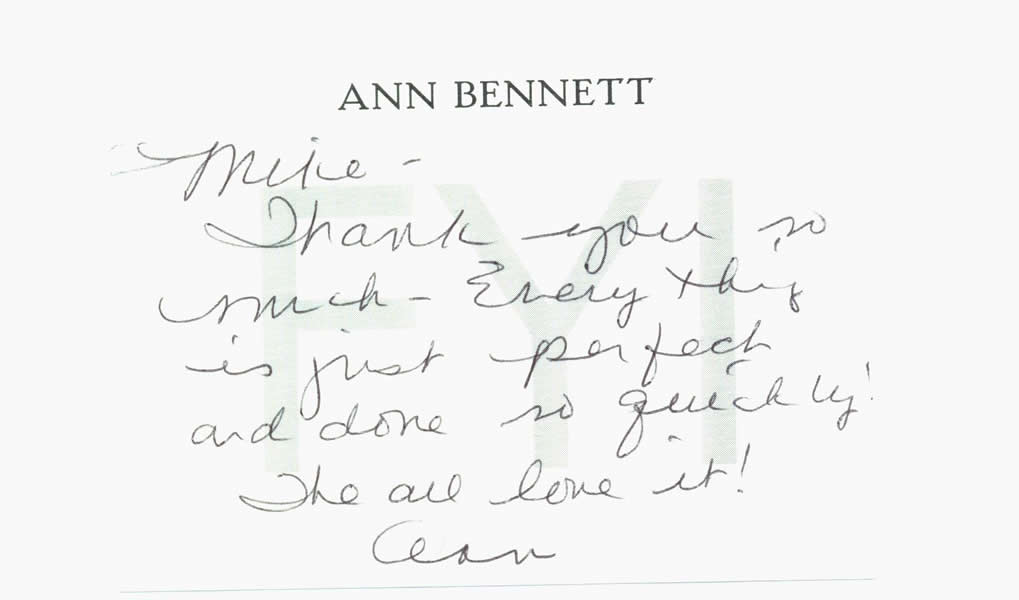 ANN BENNETT
FYI
Mike -
Thank you so
much - Everything
is just perfect
and done so quickly!
The all love it!
Ann